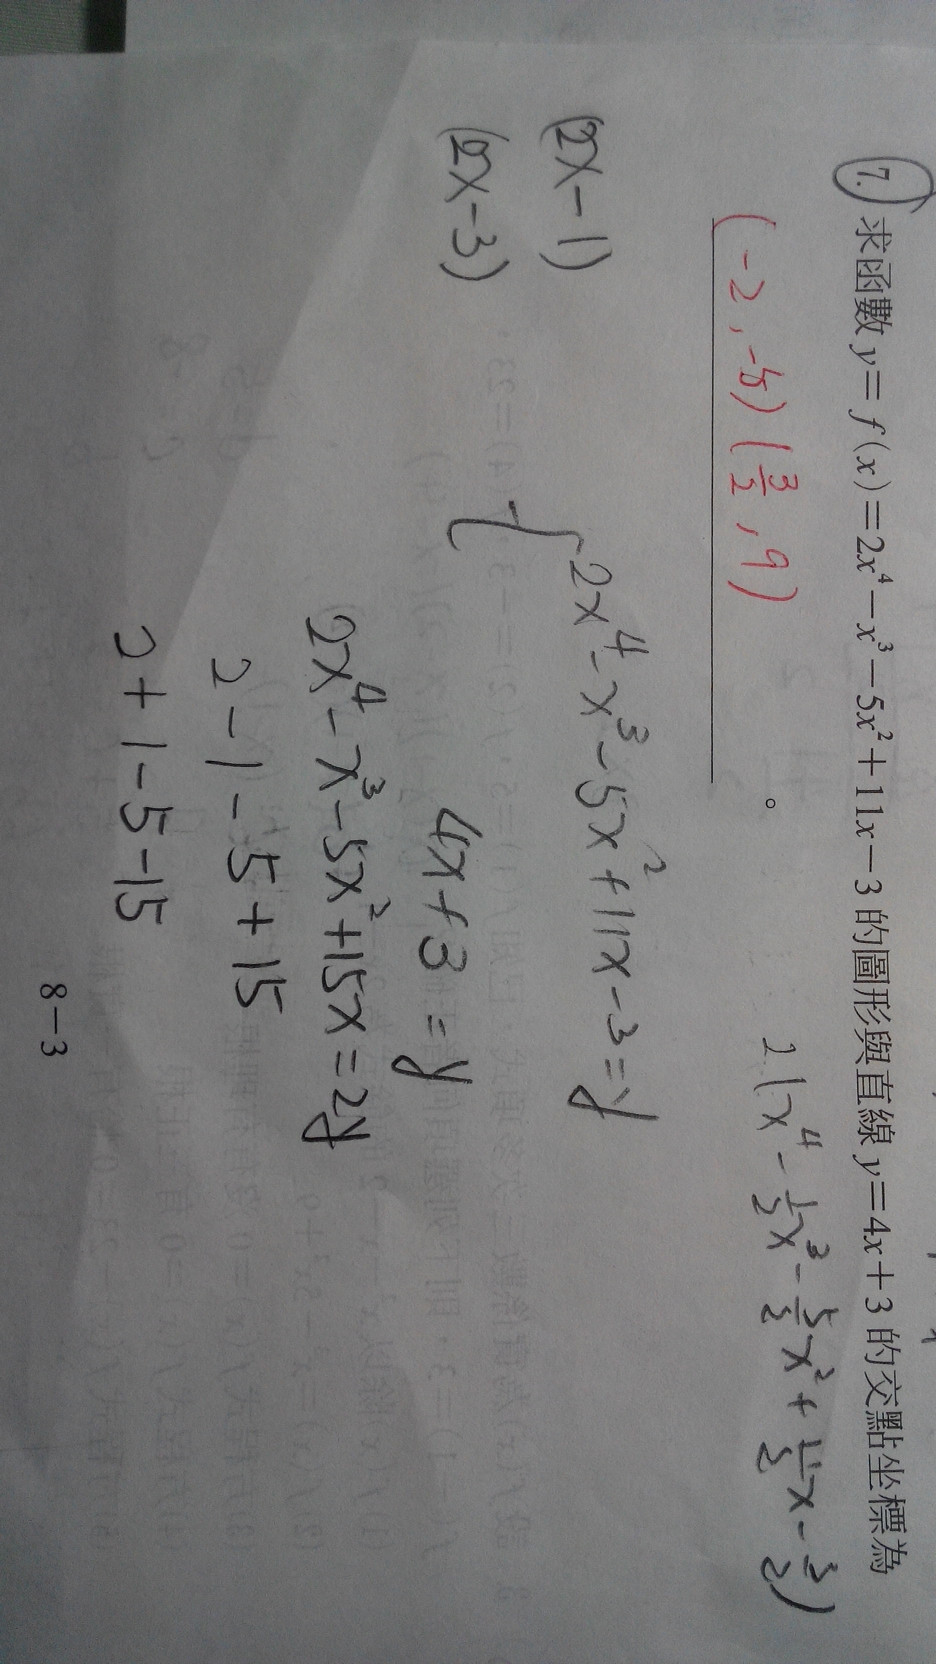 7. 求函數 y＝f(x)＝2x⁴－x³－5x²＋11x－3 的圖形與直線 y＝4x＋3 的交點坐標為
(-2, -5) (3/2, 9) 。
2(x⁴-1/2x³-5/2x²+11/2x-3/2)
(2x-1)
(2x-3)
2x⁴-x³-5x²+11x-3=y
4x+3=y
2x⁴-x³-5x²+15x=2y
2-1-5+15
2+1-5-15
8－3